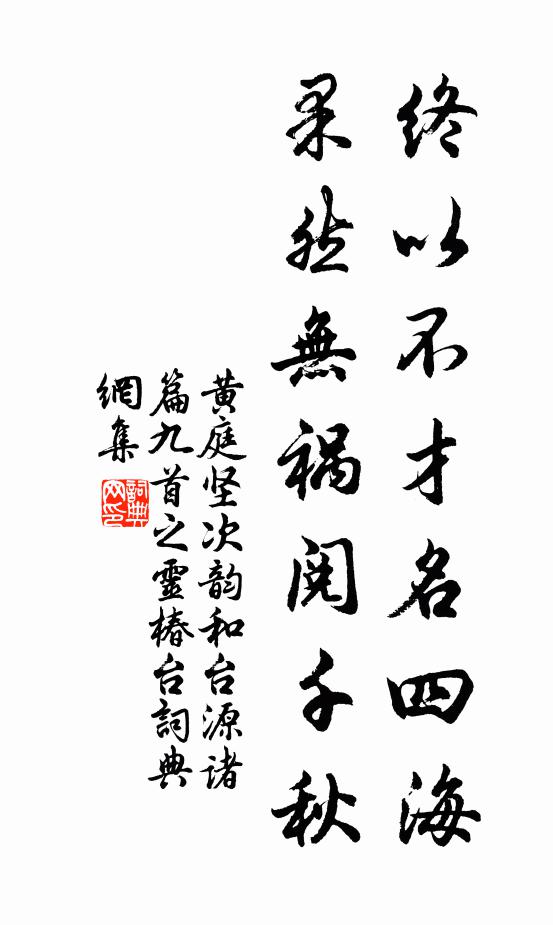 終以不才名四海
果然無禍閱千秋
黄庭坚次韵和台源诸
篇九首之靈椿台詞典
網集
詞典
网印